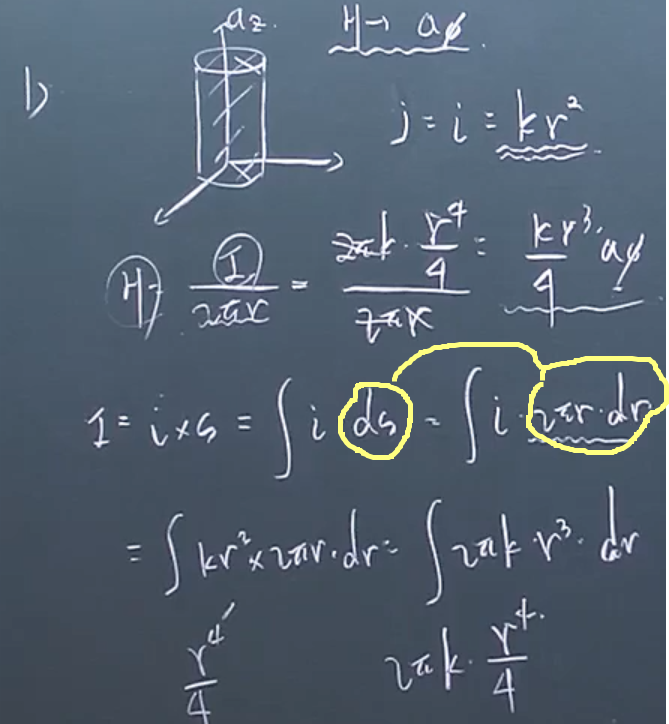 a_z. H → aϕ.
1)
j = i = kr²
H = I / 2πr = 2πk · r⁴/4 / 2πr = kr³/4 · aϕ
I = i × s = ∫ i ds = ∫ i · 2πr · dr
= ∫ kr² × 2πr · dr = ∫ 2πk · r³ · dr
r⁴/4 2πk · r⁴/4